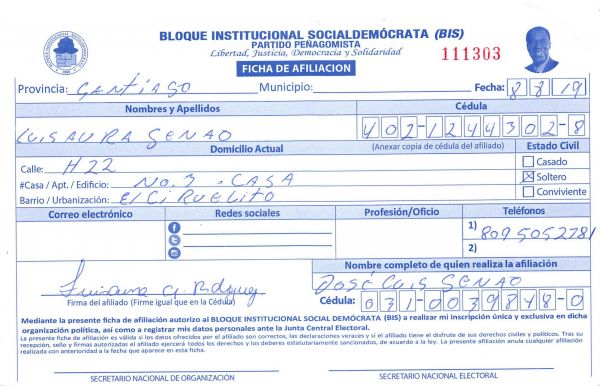 BLOQUE INSTITUCIONAL SOCIALDEMÓCRATA (BIS)
PARTIDO PEÑAGOMISTA
Libertad, Justicia, Democracia y Solidaridad
111303
FICHA DE AFILIACION
Provincia: SANTIAGO Municipio: Fecha: 8 8 19
Nombres y Apellidos Cédula
LUISAURA SENAO 402-1244302-8
Domicilio Actual (Anexar copia de cédula del afiliado) Estado Civil
Calle: H22 Casado
#Casa / Apt. / Edificio: No. 3 . CASA Soltero
Barrio / Urbanización: El CiRUELITO Conviviente
Correo electrónico Redes sociales Profesión/Oficio Teléfonos
1) 8095052781
2)
Nombre completo de quien realiza la afiliación
JOSÉ LUIS SENAO
Firma del afiliado (Firme igual que en la Cédula) Cédula: 031-0039848-0
Mediante la presente ficha de afiliación autorizo al BLOQUE INSTITUCIONAL SOCIAL DEMÓCRATA (BIS) a realizar mi inscripción única y exclusiva en dicha
organización política, así como a registrar mis datos personales ante la Junta Central Electoral.
La presente ficha de afiliación es válida si los datos ofrecidos por el afiliado son correctos, las declaraciones veraces y si el afiliado tiene el disfrute de sus derechos civiles y políticos. Tras su
recepción, sello y firmas autorizadas el afiliado ejercerá todos los derechos y los deberes estatutariamente sancionados, de acuerdo a la ley. La presente afiliación anula cualquier afiliación
realizada con anterioridad a la fecha que aparece en esta ficha.
SECRETARIO NACIONAL DE ORGANIZACIÓN SECRETARIO NACIONAL ELECTORAL